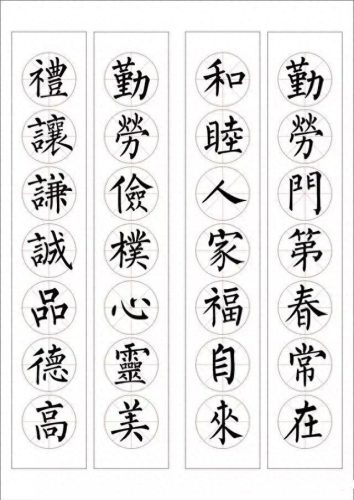 勤勞門第春常在
和睦人家福自來
勤勞儉樸心靈美
禮讓謙誠品德高